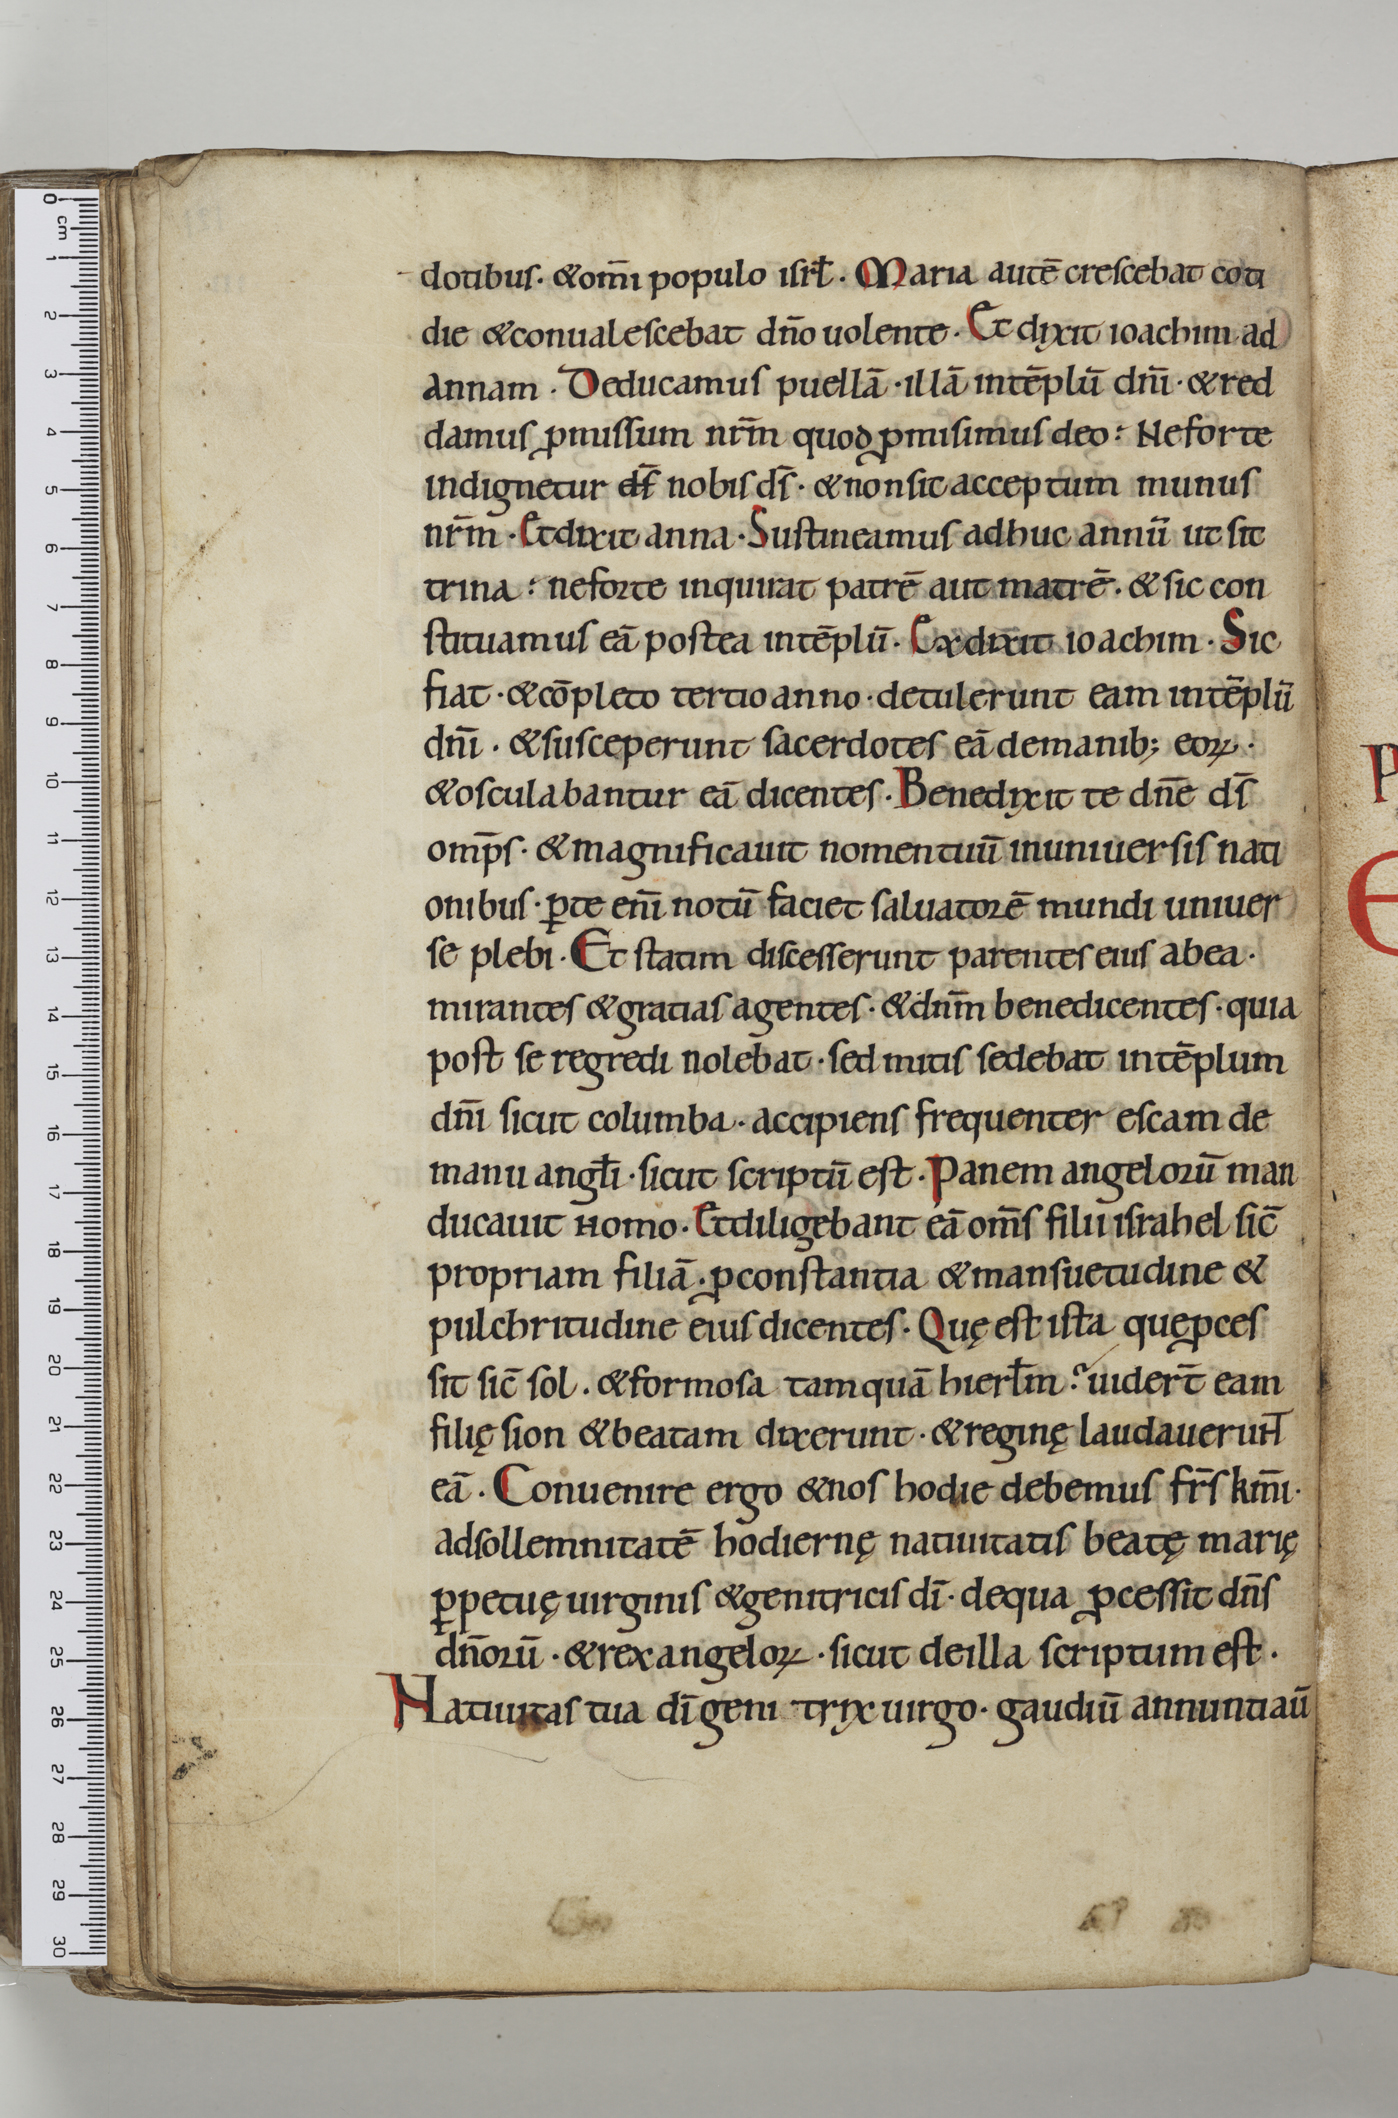 dotibus· &om̄i populo isrł· Maria autē crescebat coti
die &conualescebat dn̄o uolente· Et dixit ioachim ad
annam· Deducamus puellā· illā intēplū dn̄i· &red
damus ꝓmissum nr̄m quod ꝓmisimus deo: Neforte
indignetur ds̄ nobis ds̄· &nonsit acceptum munus
nr̄m· Etdixit anna· Sustineamus adhuc annū ut sit
trina: neforte inquirat patrē aut matrē· & sic con
stituamus eā postea intēplū· Exdixit ioachim· Sic
fiat· &cōpleto tertio anno· detulerunt eam intēplū
dn̄i· &susceperunt sacerdotes eā demanib; eoꝝ·
&osculabantur eā dicentes· Benedixit te dn̄e ds̄
omp̄s· &magnificauit nomentuū inuniuersis nati
onibus· ꝑte eni̅ notū faciet saluatorē mundi uniuer
se plebi· Et statim discesserunt parentes eius abea·
mirantes &gratias agentes· &dnm̄ benedicentes· quia
post se regredi nolebat· sed mitis sedebat intēplum
dn̄i sicut columba· accipiens frequenter escam de
manu angłi· sicut scriptū est· Panem angelorū man
ducauit homo· Etdiligebant eā om̄s filii israhel sic̄
propriam filiā· ꝓconstantia &mansuetudine &
pulchritudine eius dicentes· Quę est ista quęꝓces
sit sic̄ sol· &formosa tamquā hierłm? uider̄t eam
filię sion &beatam dixerunt· &reginę laudauerunt
eā· Conuenire ergo &nos hodie debemus fr̄s km̄i·
adsollemnitatē hodiernę natiuitatis beatę marię
ꝑpetuę uirginis &genitricis dī· dequa ꝓcessit dn̄s
dn̄orū· &rex angeloꝝ· sicut deilla scriptum est·
Natiuitas tua dī geni trix uirgo· gaudiū annuntiaū